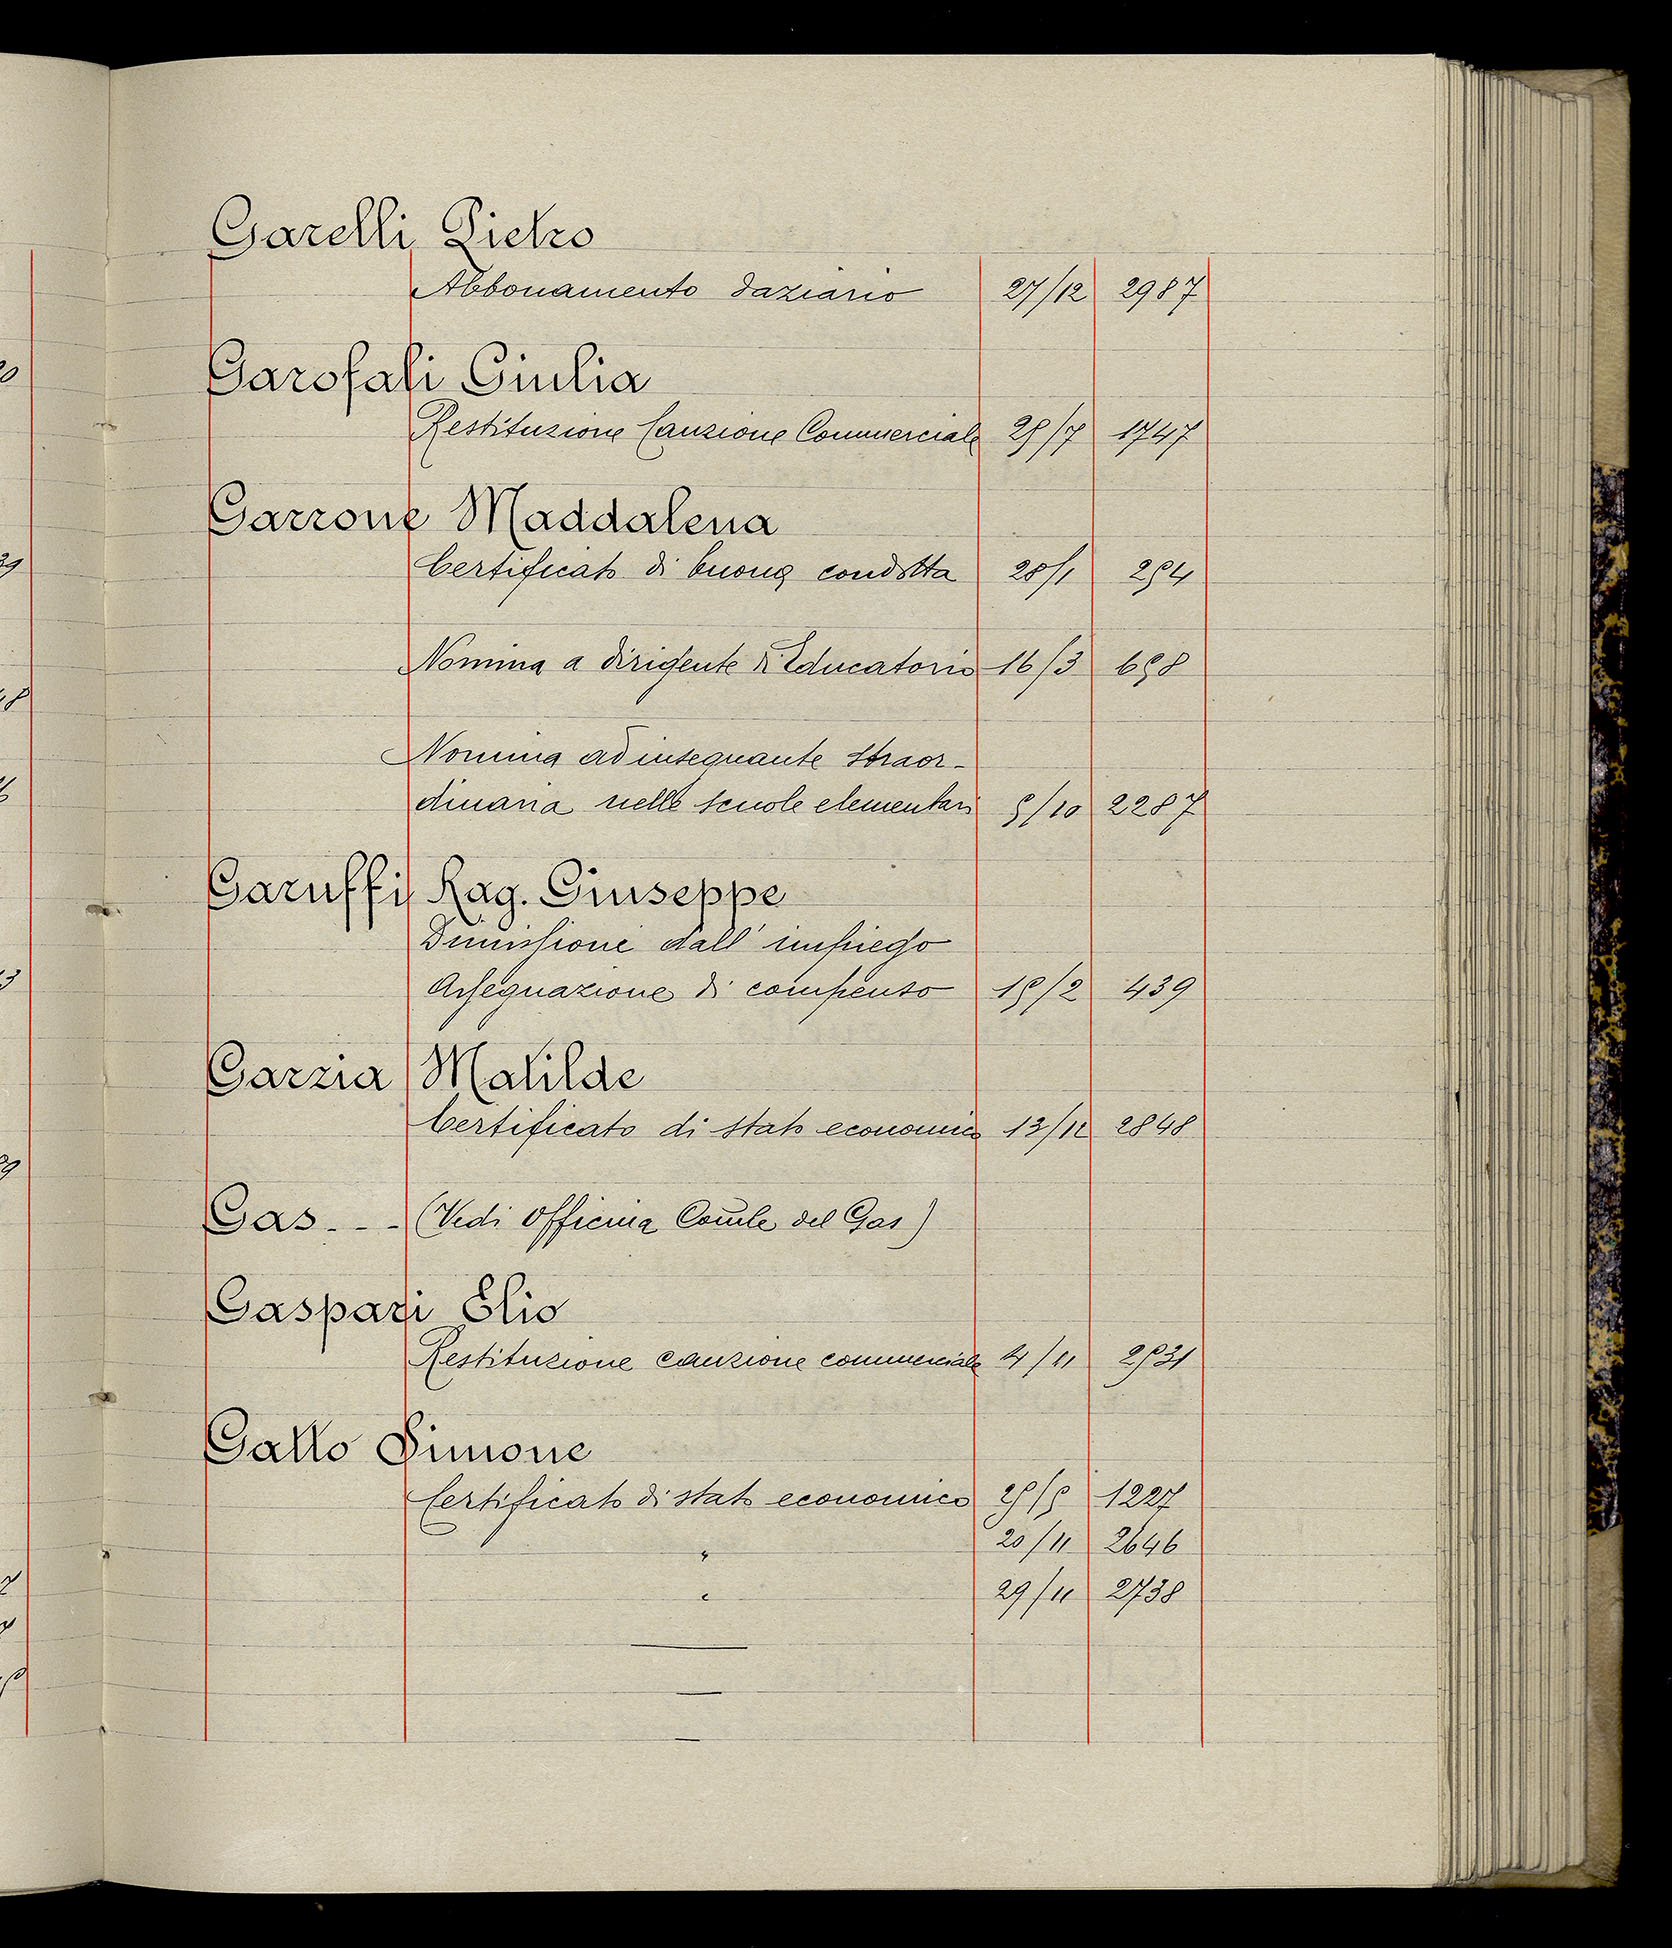 Garelli Pietro
Abbonamento daziario 27/12 2987
Garofali Giulia
Restituzione Cauzione Commerciale 25/7 1747
Garrone Maddalena
Certificato di buona condotta 28/1 254
Nomina a dirigente di Educatorio 16/3 658
Nomina ad insegnante straor-
dinaria nelle scuole elementari 5/10 2287
Garuffi Rag. Giuseppe
Dimissione dall' impiego
Assegnazione di compenso 15/2 439
Garzia Matilde
Certificato di stato economico 13/12 2848
Gas - - - (Vedi Officina Comle del Gas)
Gaspari Elio
Restituzione cauzione commerciale 4/11 2531
Gatto Simone
Certificato di stato economico 25/5 1227
" 20/11 2646
" 29/11 2738